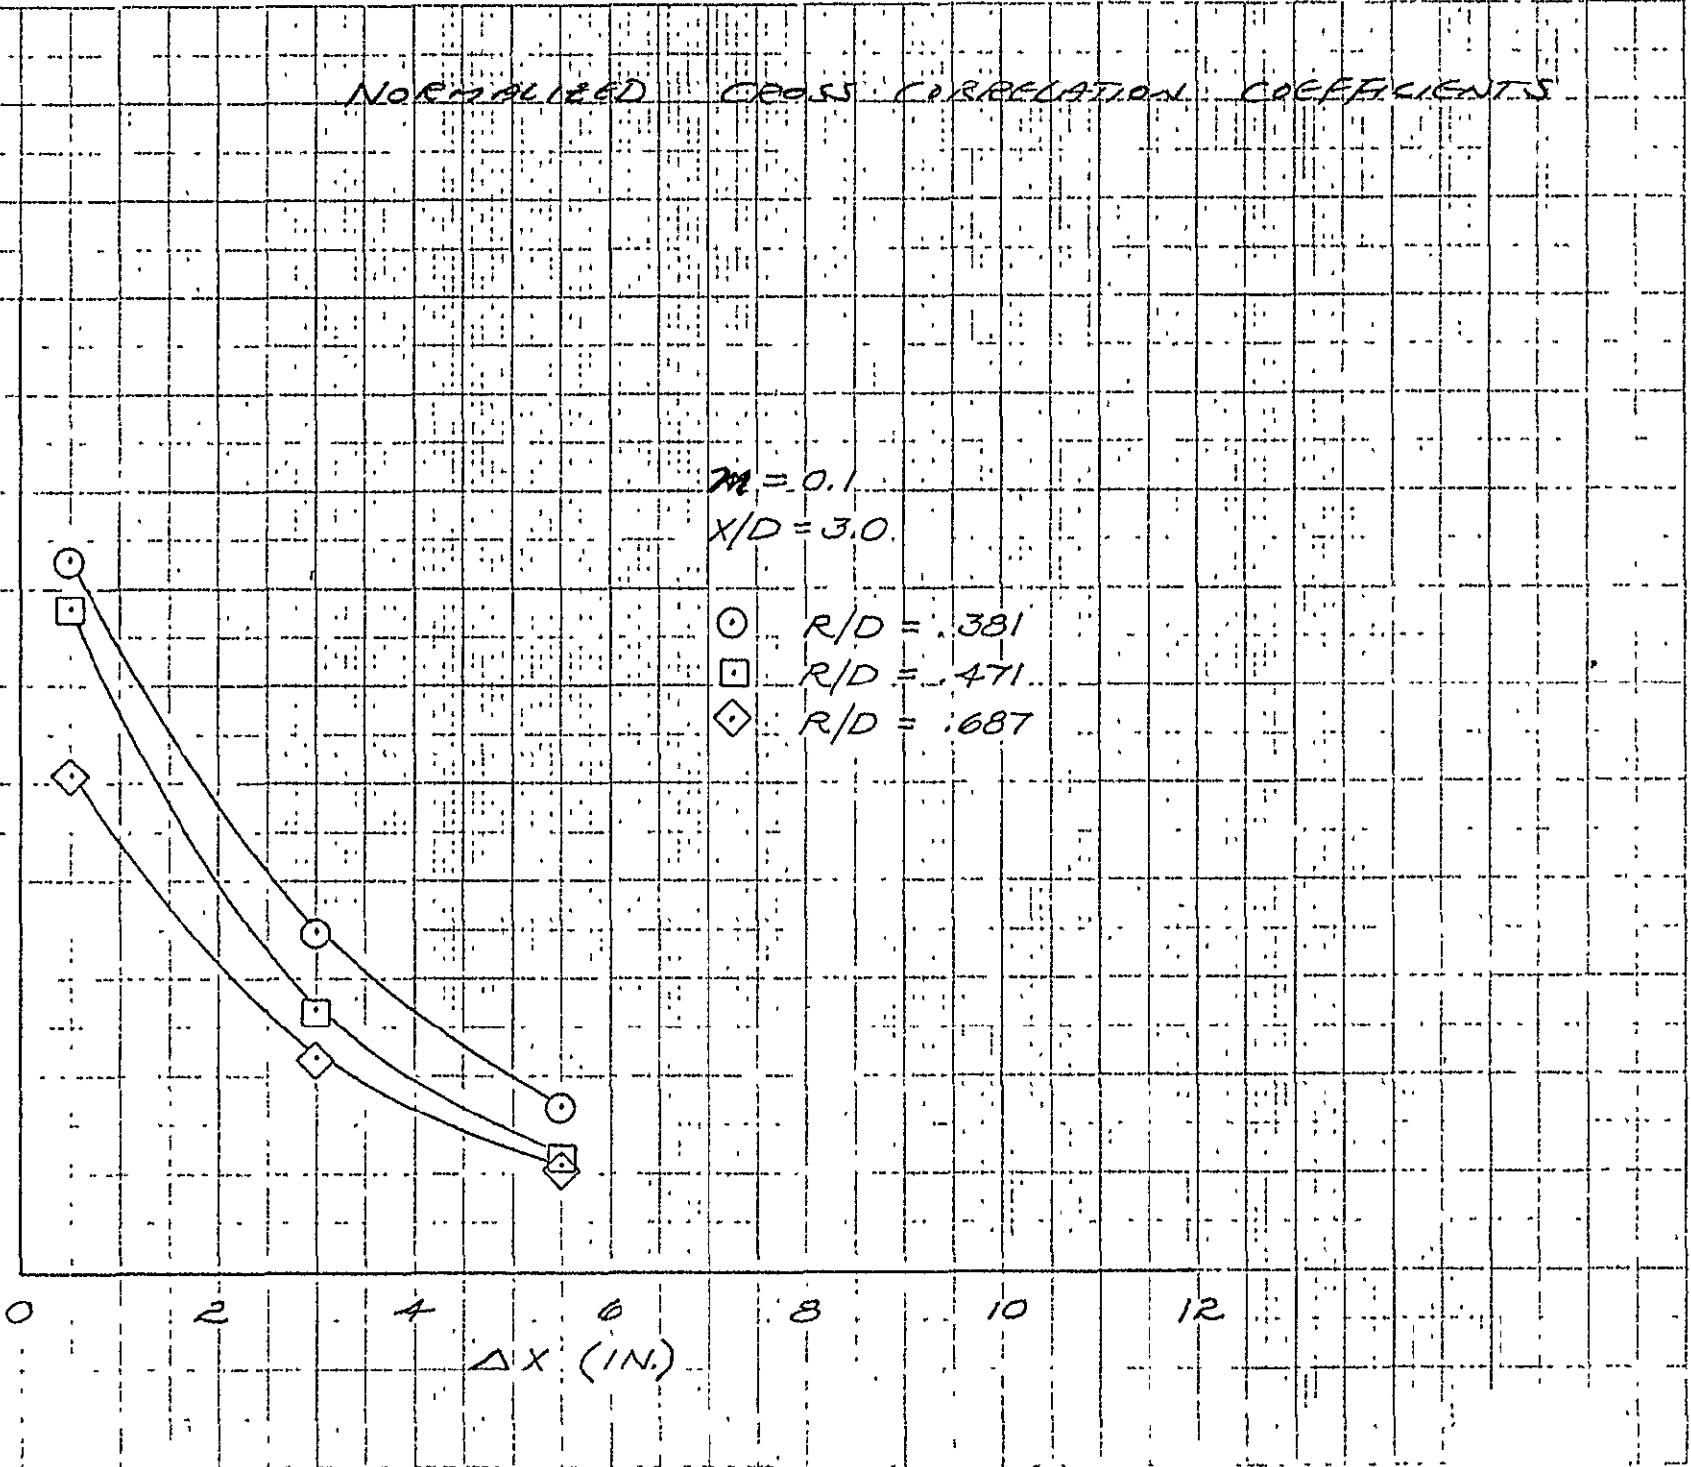 NORMALIZED CROSS CORRELATION COEFFICIENTS
M = 0.1
X/D = 3.0
R/D = .381
R/D = .471
R/D = .687
0 2 4 6 8 10 12
ΔX (IN.)